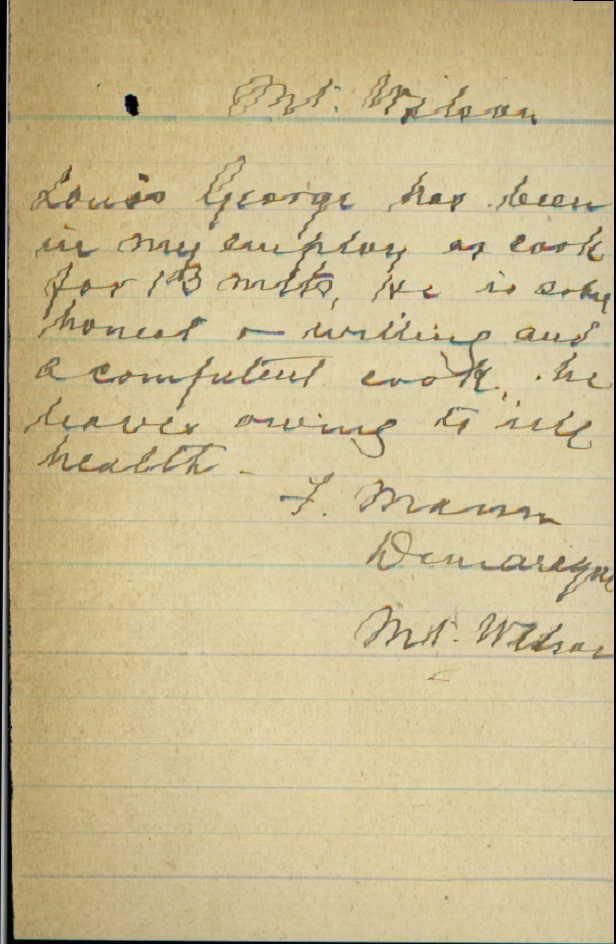 Mt. Wilson
Louis George has been
in my employ as cook
for 13 mths, He is sober
honest & willing and
a competent cook, he
leaves owing to ill
health -
F. Mann
Mt. Wilson